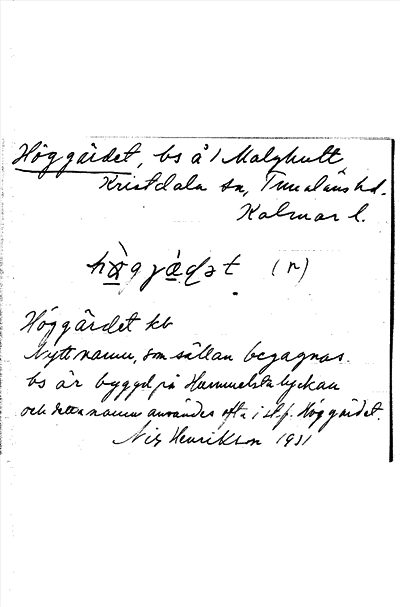 Höggärdet, bs å 1 Malghult
Kristdala sn, Tunaläns hd.
Kalmar l.
(n)
Höggärdet kb
Nytt namn, som sällan begagnas.
bs är byggd på Hammelstalyckan
och detta namn användes ofta i st. f. Höggärdet.
Nils Henrikson 1931